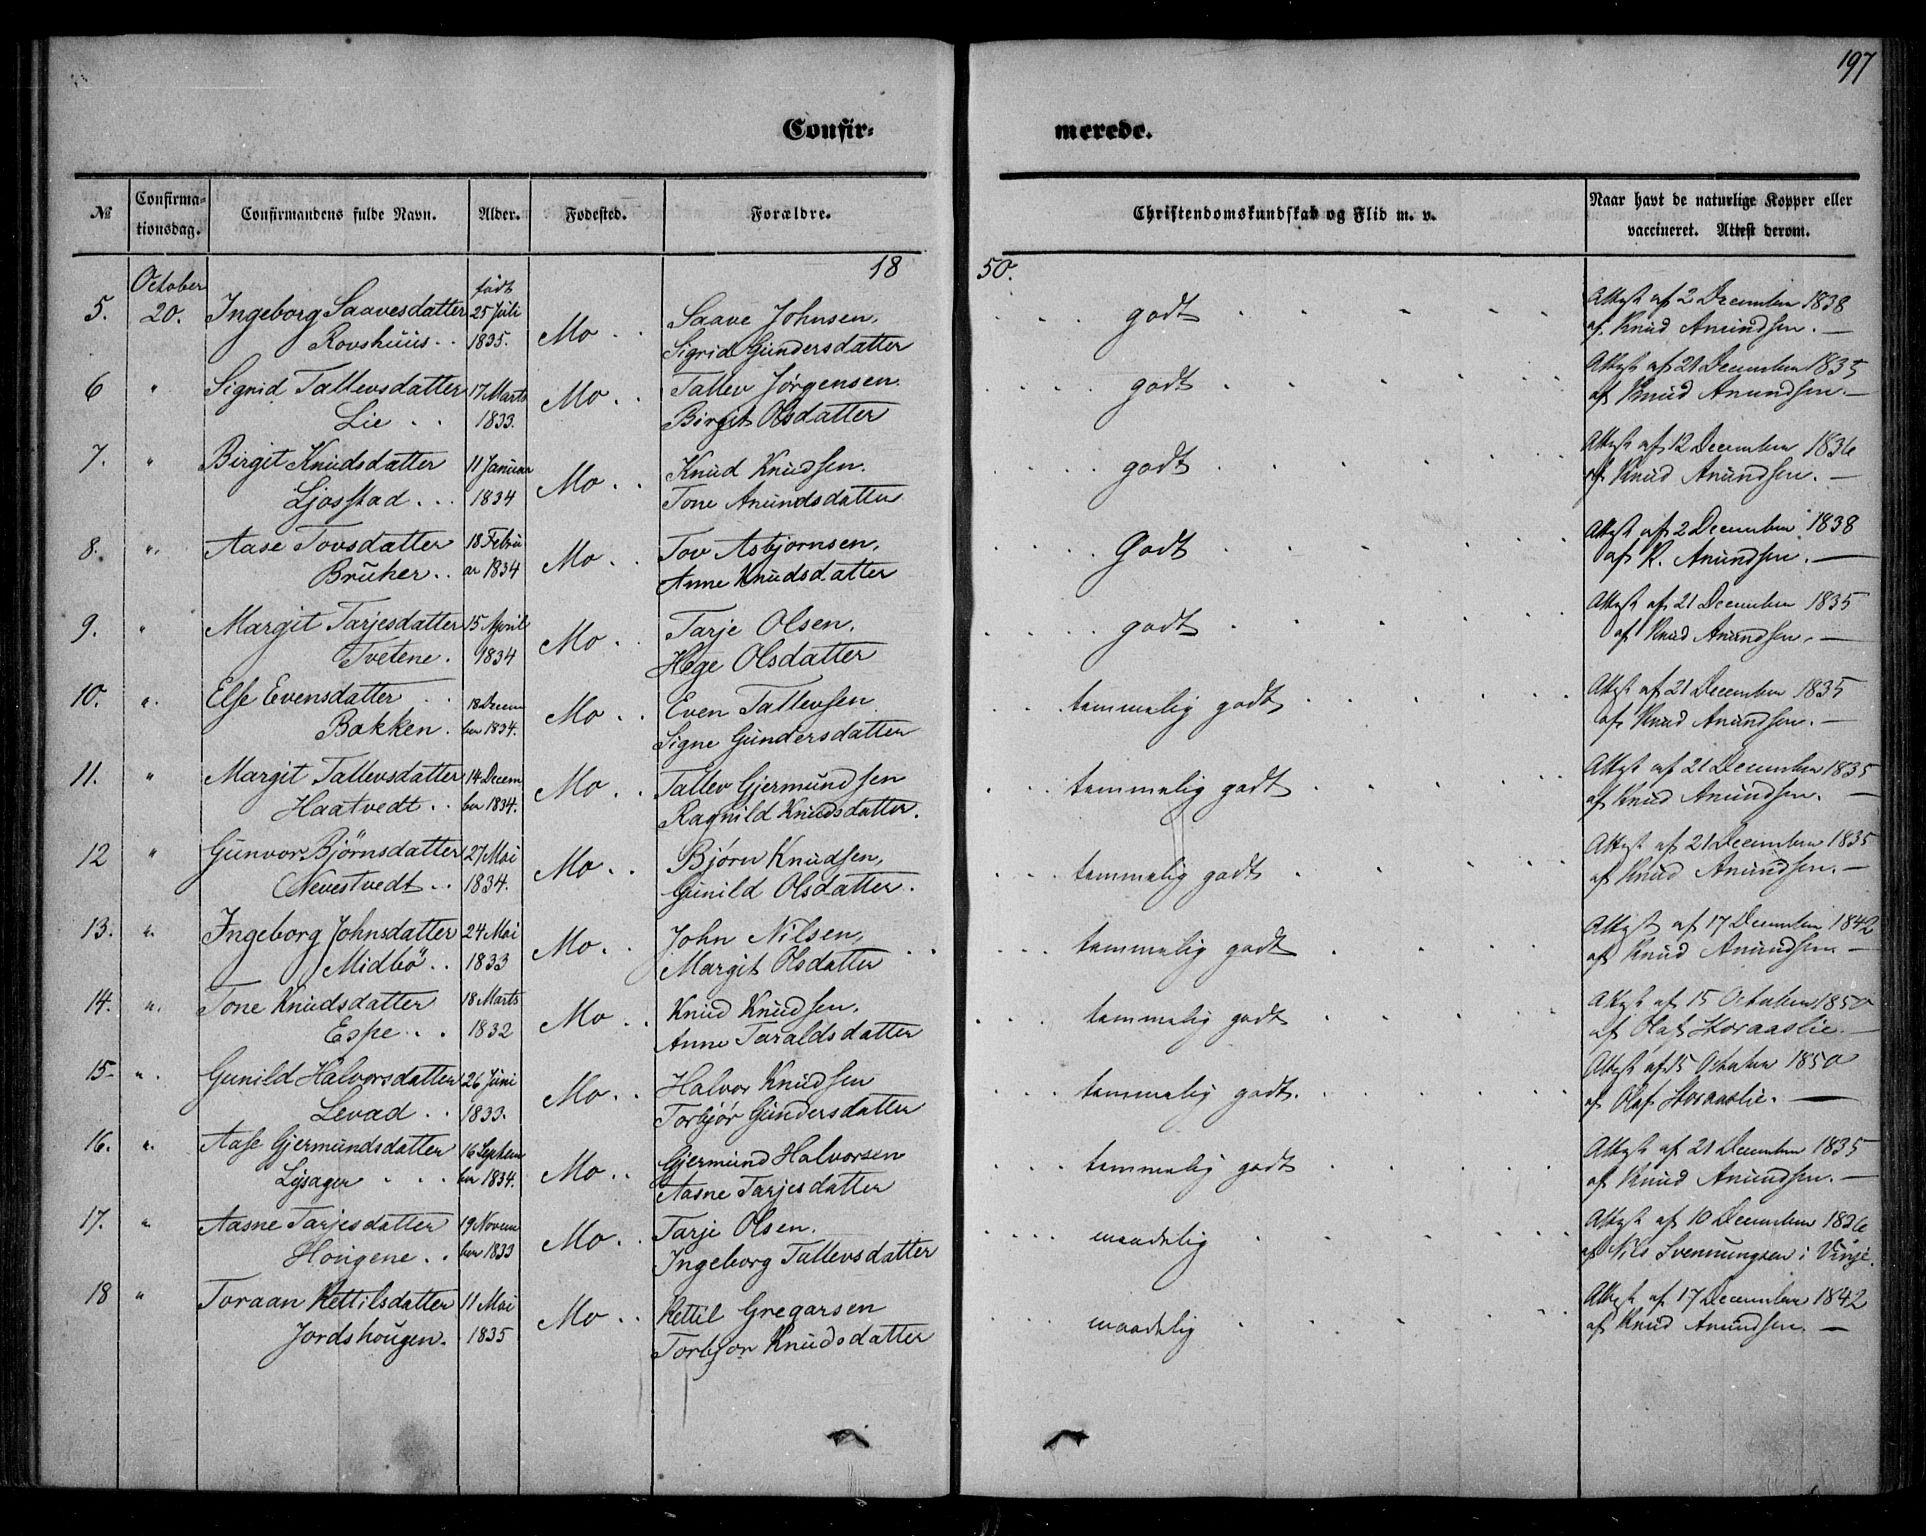 197
Confir= merede.
№ Confirma= tionsdag. Confirmandens fulde Navn. Alder. Fodested. Forældre. Christendomskundskab og Flid m. v. Naar havt de naturlige Kopper eller vaccineret. Attest derom.
1850.
October født
5. 20. Ingeborg Saavesdatter 25 Juli Saave Johnsen, godt Attest af 2 December 1838
Rovshuus 1835. Mo Sigrid Gundersdatter af Knud Anundsen.
6 " Signid Tallevsdatter 17 Marts Mo Tallev Jørgensen godt Attest af 21 December 1835
Lie 1833. Birgit Olsdatter af Knud Anundsen.
7. " Birgit Knudsdatter 11 Januar Mo Knud Knudsen. godt Attest af 12 December 1836
Ljosstad 1834 Tone Anundsdatter af Knud Anundsen.
8. " Aase Tovsdatter 18 Febru Mo Tov Asbjornsen, Godt Attest af 2 December 1838
Bruker ar 1834 Anne Knudsdatter af K. Anundsen.
9. " Margit Tarjesdatter 15 April Mo Tarje Olsen, godt Attest af 21 December 1835
Tvetene. 1834 Hege Olsdatter af Knud Anundsen.
10. " Else Evensdatter 18 Decem Mo Even Tallevsen temmelig godt Attest af 21 December 1835
Bakken. ber 1834. Signe Gundersdatter af Knud Anundsen.
11. " Margit Tallevsdatter 14 Decem Mo Tallev Gjermundsen temmelig godt Attest af 21 December 1835
Haatvedt ber 1834. Ragnild Knudsdatter. af Knud Anundsen.
12 " Gunvor Bjørnsdatter 27 Mai Mo Bjørn Knudsen, temmelig godt Attest af 21 December 1835
Nevestvedt 1834. Gunild Olsdatter. af Knud Anundsen.
13. " Ingeborg Johnsdatter 24 Mai Mo John Nilsen, temmelig godt Attest af 17 December 1842
Midbø 1833 Margit Olsdatter af Knud Anundsen
14. " Tone Knudsdatter 18 Marts Mo Knud Knudsen, temmelig godt Attest af 15 October 1850
Espe 1832 Anne Taraldsdatter af Olaf Storaaslie.
15 " Gunild Halvorsdatter 26 Juni Mo Halvor Knudsen temmelig godt. Attest af 15 October 1850
Levad 1833. Torbjør Gundersdatter af Olaf Storaaslie.
16. " Aase Gjermundsdatter 16 Septem Mo Gjermund Halvorsen temmelig godt Attest af 21 December 1835
Lysager ber 1834. Aasne Tarjesdatter af Knud Anundsen.
17. " Aasne Tarjesdatter 19 Novem Mo Tarje Olsen. maadelig Attest af 10 December 1836
Hougene ber 1833 Ingeborg Tallevsdatter af Nils Svennungsen i Vinje.
18 " Toraan Kettilsdatter 11 Mai Mo Kettil Gregarsen maadelig Attest af 17 December 1842
Jordshougen. 1835 Torbjor Knudsdatter af Knud Anundsen